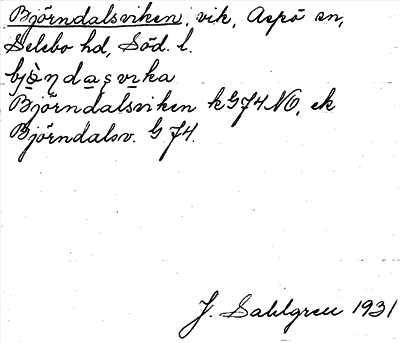 Björndalsviken, vik, Aspö sn,
Selebo hd, Söd. l.
bjö̀ṇdaṣvika
Björndalsviken kG74NO, ek
Björndalsv. G 74.
J. Sahlgren 1931